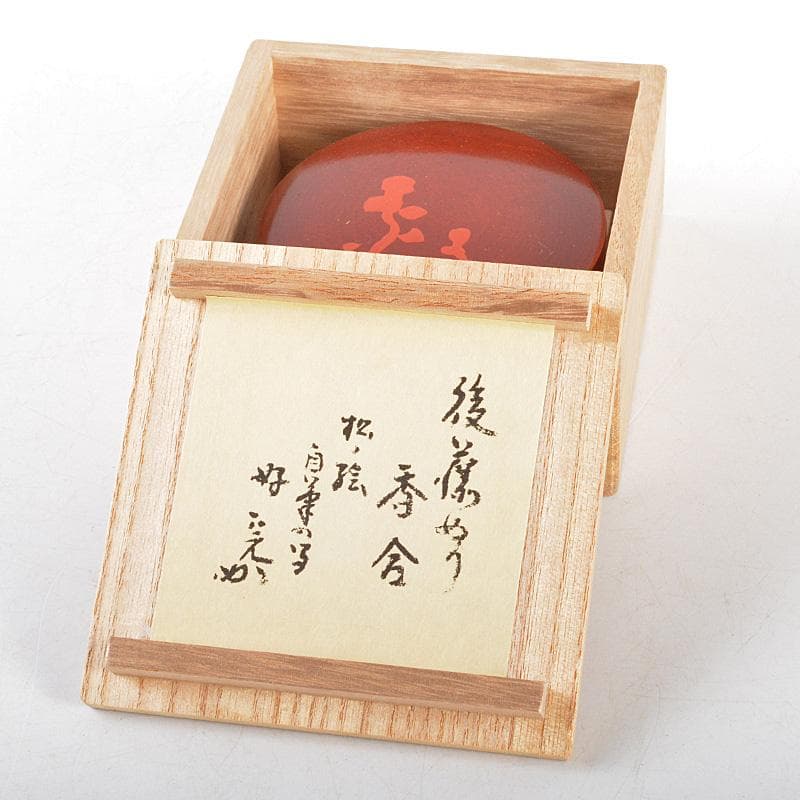 後藤ぬり
香合
松ノ絵
自筆の写
好